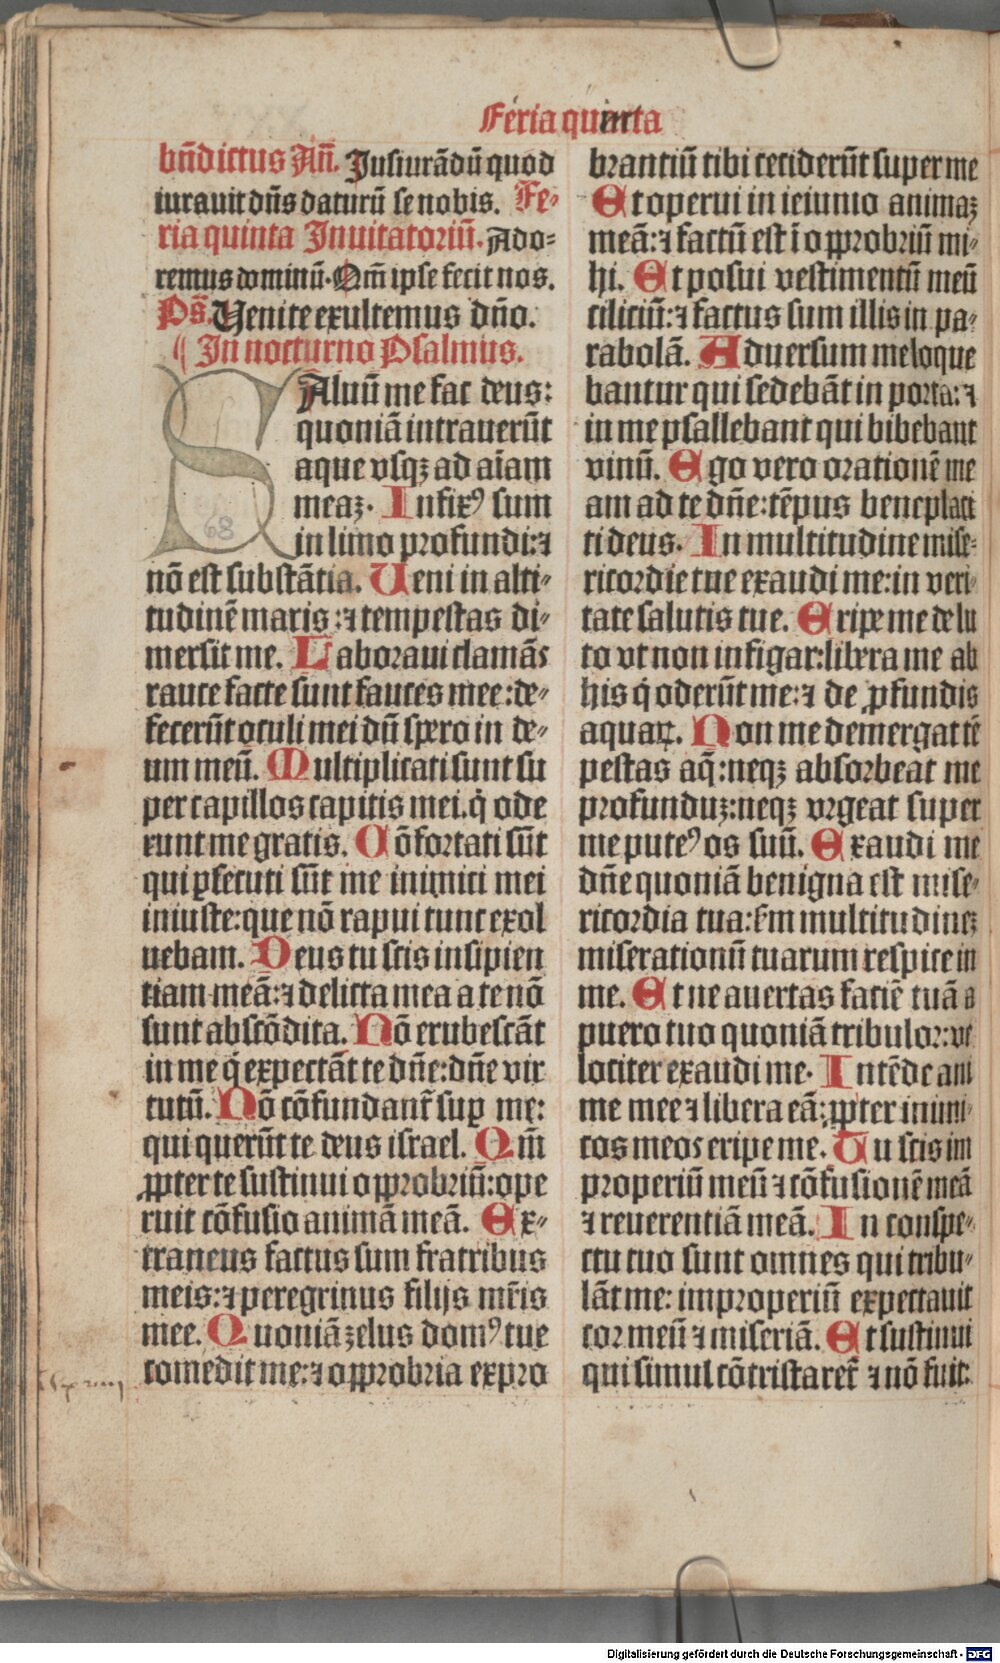 Feria quinta
bn̄dictus Añ. Jusiurādū quod
iurauit dn̄s daturū se nobis. Fe-
ria quinta Inuitatoriū. Ado-
remus dominū. Qm̄ ipse fecit nos.
Ps̄. Uenite exultemus dn̄o.
In nocturno Psalmus.
SAluū me fac deus:
quoniā intrauerūt
aque vsqꝫ ad aīam
meaꝫ. Infixꝰ sum
in limo profundi: ⁊
nō est substātia. Ueni in alti-
tudinē maris: ⁊ tempestas di-
mersit me. Laboraui clamās
rauce facte sunt fauces mee: de-
fecerūt oculi mei dū spero in de-
um meū. Multiplicati sunt su
per capillos capitis mei. q̇ ode
runt me gratis. Cōfortati sūt
qui ꝑsecuti sūt me inimici mei
iniuste: que nō rapui tunc exol
uebam. Deus tu scis insipien
tiam meā: ⁊ delicta mea a te nō
sunt abscōdita. Nō erubescāt
in me q̇ expectāt te dn̄e: dn̄e vir
tutū. Nō cōfundant̄ suꝑ me:
qui querūt te deus israel. Qm̄
ꝓpter te sustinui opprobriū: ope
ruit cōfusio animā meā. Ex-
traneus factus sum fratribus
meis: ⁊ peregrinus filijs mr̄is
mee. Quoniā zelus domꝰ tue
comedit me: ⁊ opprobria expro
brantiū tibi ceciderūt super me
Et operui in ieiunio animaꝫ
meā: ⁊ factū est ī opprobriū mi-
hi. Et posui vestimentū meū
ciliciū: ⁊ factus sum illis in pa-
rabolā. Aduersum me loque
bantur qui sedebāt in porta: ⁊
in me psallebant qui bibebant
vinū. Ego vero orationē me
am ad te dn̄e: tēpus beneplaci
ti deus. In multitudine mise-
ricordie tue exaudi me: in veri-
tate salutis tue. Eripe me de lu
to vt non infigar: libera me ab
his q̇ oderūt me: ⁊ de ꝓfundis
aquaꝝ. Non me demergat tē
pestas aq̄: neqꝫ absorbeat me
profunduꝫ: neqꝫ vrgeat super
me puteꝰ os suū. Exaudi me
dn̄e quoniā benigna est mise-
ricordia tua: ẜm multitudineꝫ
miserationū tuarum respice in
me. Et ne auertas faciē tuā a
puero tuo quoniā tribulor: ve
lociter exaudi me. Intēde ani
me mee ⁊ libera eā: ꝓpter inimi
cos meos eripe me. Tu scis im
properiū meū ⁊ cōfusionē meā
⁊ reuerentiā meā. In conspe-
ctu tuo sunt omnes qui tribu-
lāt me: improperiū expectauit
cor meū ⁊ miseriā. Et sustinui
qui simul cōtristaret̄ ⁊ nō fuit:
68
Digitalisierung gefördert durch die Deutsche Forschungsgemeinschaft - DFG